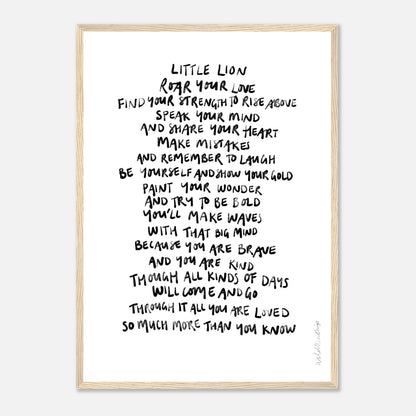 LITTLE LION
ROAR YOUR LOVE
FIND YOUR STRENGTH TO RISE ABOVE
SPEAK YOUR MIND
AND SHARE YOUR HEART
MAKE MISTAKES
AND REMEMBER TO LAUGH
BE YOURSELF AND SHOW YOUR GOLD
PAINT YOUR WONDER
AND TRY TO BE BOLD
YOU'LL MAKE WAVES
WITH THAT BIG MIND
BECAUSE YOU ARE BRAVE
AND YOU ARE KIND
THOUGH ALL KINDS OF DAYS
WILL COME AND GO
THROUGH IT ALL YOU ARE LOVED
SO MUCH MORE THAN YOU KNOW